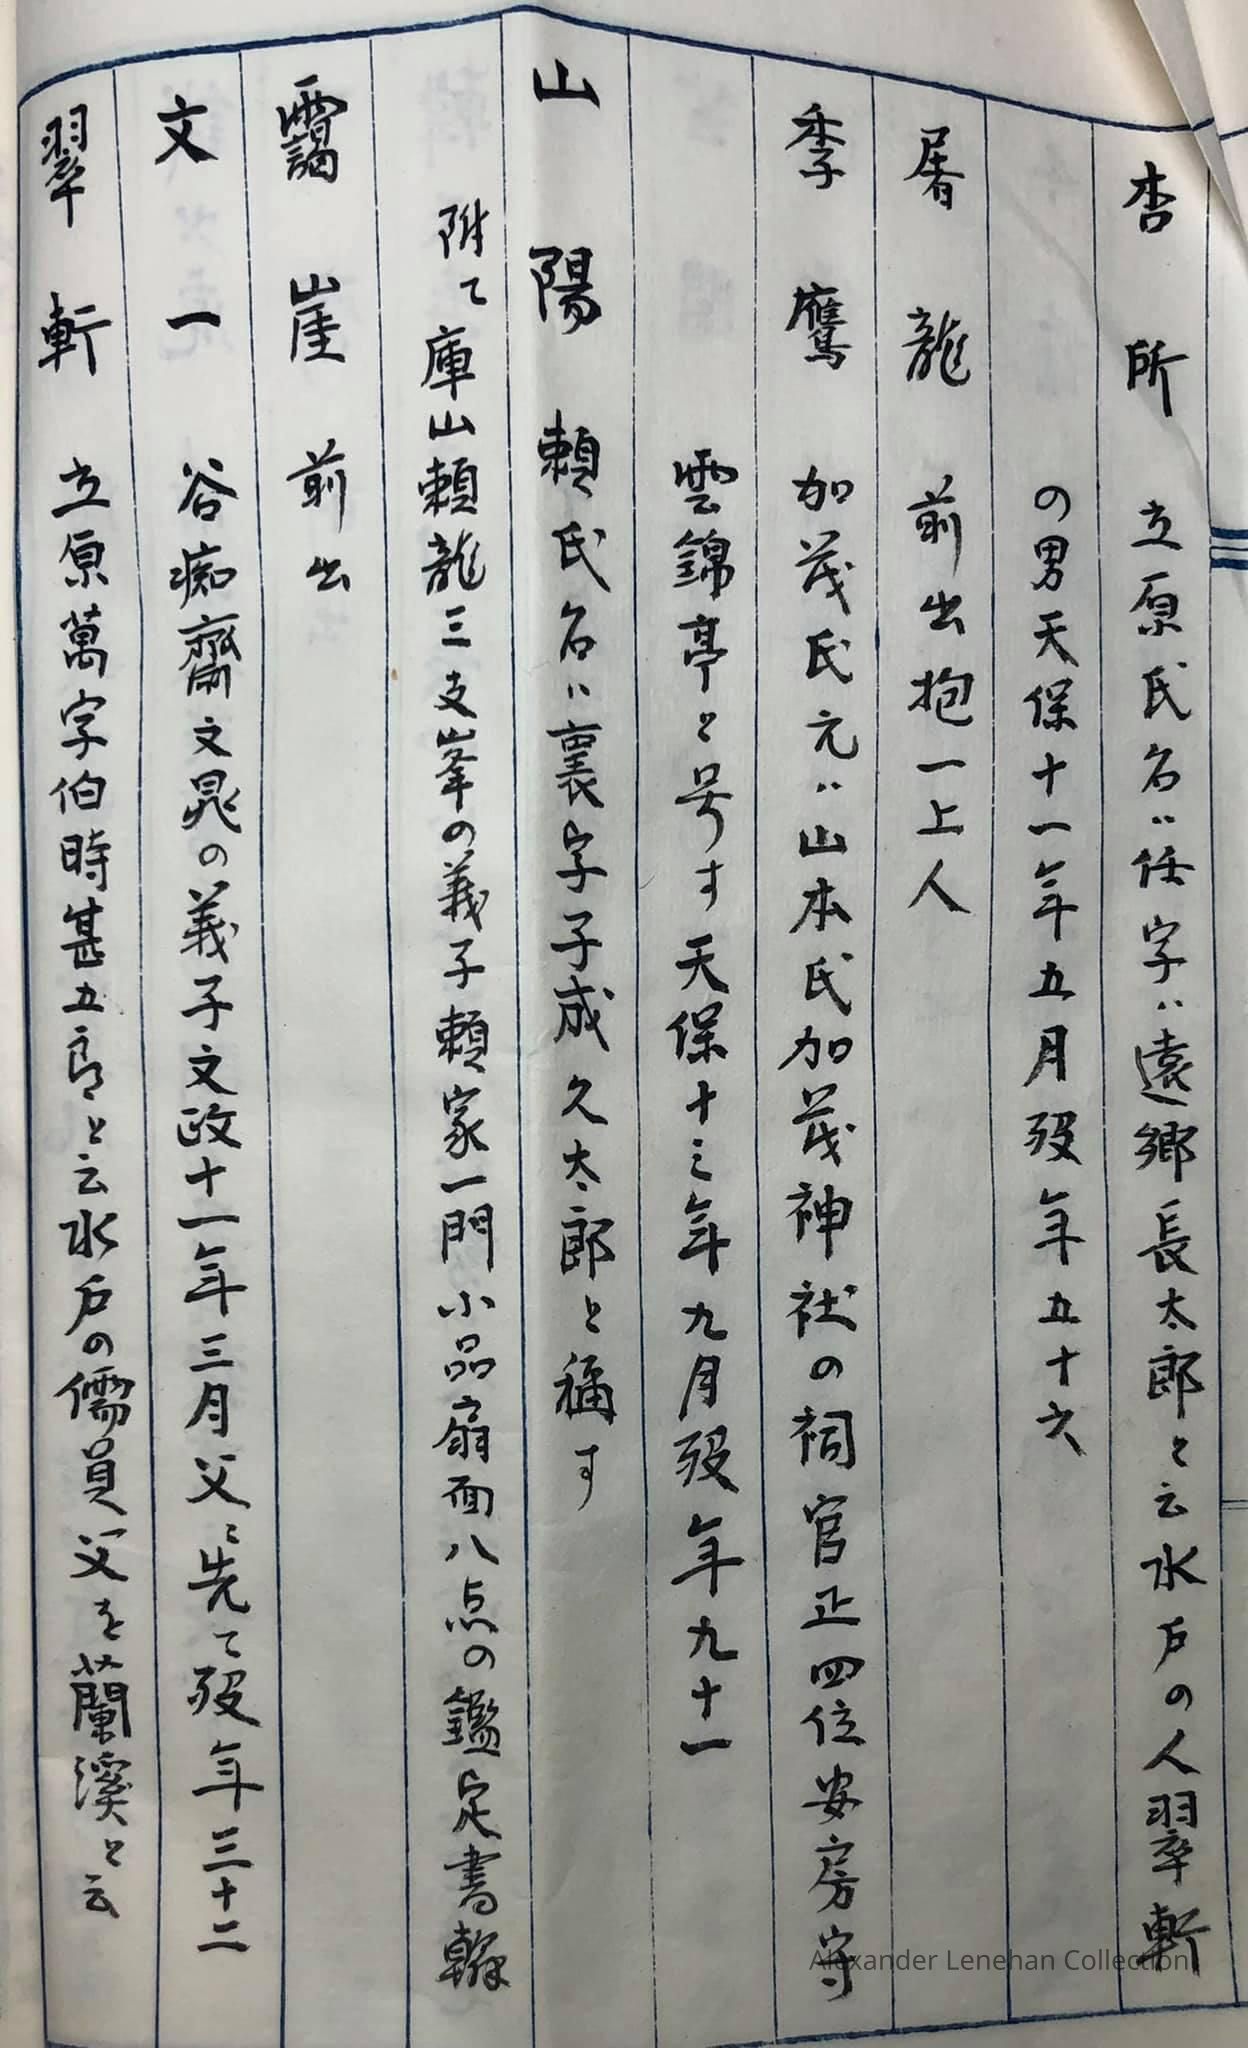 杏所 立原氏名ハ任字ハ遠郷長太郎と云水戸の人翠軒
の男天保十一年五月歿年五十六
屠龍 前出抱一上人
季鷹 加茂氏元ハ山本氏加茂神社の祠官正四位安房守
雲錦亭と号す天保十三年九月歿年九十一
山陽 頼氏名ハ襄字子成久太郎と称す
附て庫山頼龍三支峯の義子頼家一門小品扇面八点の鑑定書翰
靄崖 前出
文一 谷痴齋文晁の義子文政十一年三月父ニ先て歿年三十二
翠軒 立原萬字伯時甚五郎と云水戸の儒員父を蘭溪と云
Alexander Lenehan Collection